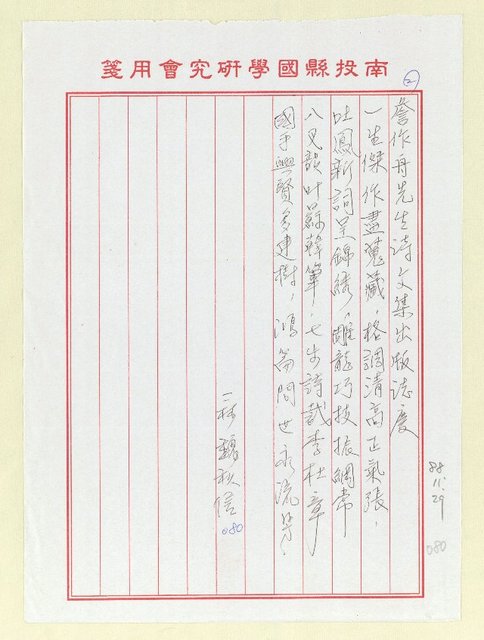 南投縣國學研究會用箋
②
詹作舟先生詩文集出版誌慶
一生傑作盡蒐藏，格調清高正氣張，
吐鳳新詞呈錦繡，雕龍巧技振綱常
八叉韻叶蘇韓筆，七步詩裁李杜章
國手興賢多建樹，鴻篇問世永流芳。
二林 魏秋信
080
88.11.29
080